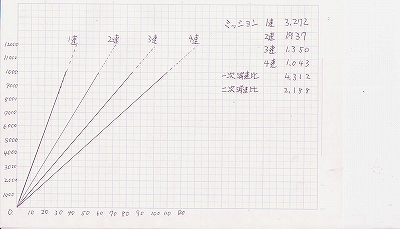 ミッション 1速 3.272
2速 1.937
3速 1.350
4速 1.043
一次減速比 4.312
二次減速比 2.188
1速 2速 3速 4速
12000
11000
10000
9000
8000
7000
6000
5000
4000
3000
2000
1000
0 10 20 30 40 50 60 70 80 90 100 110 120